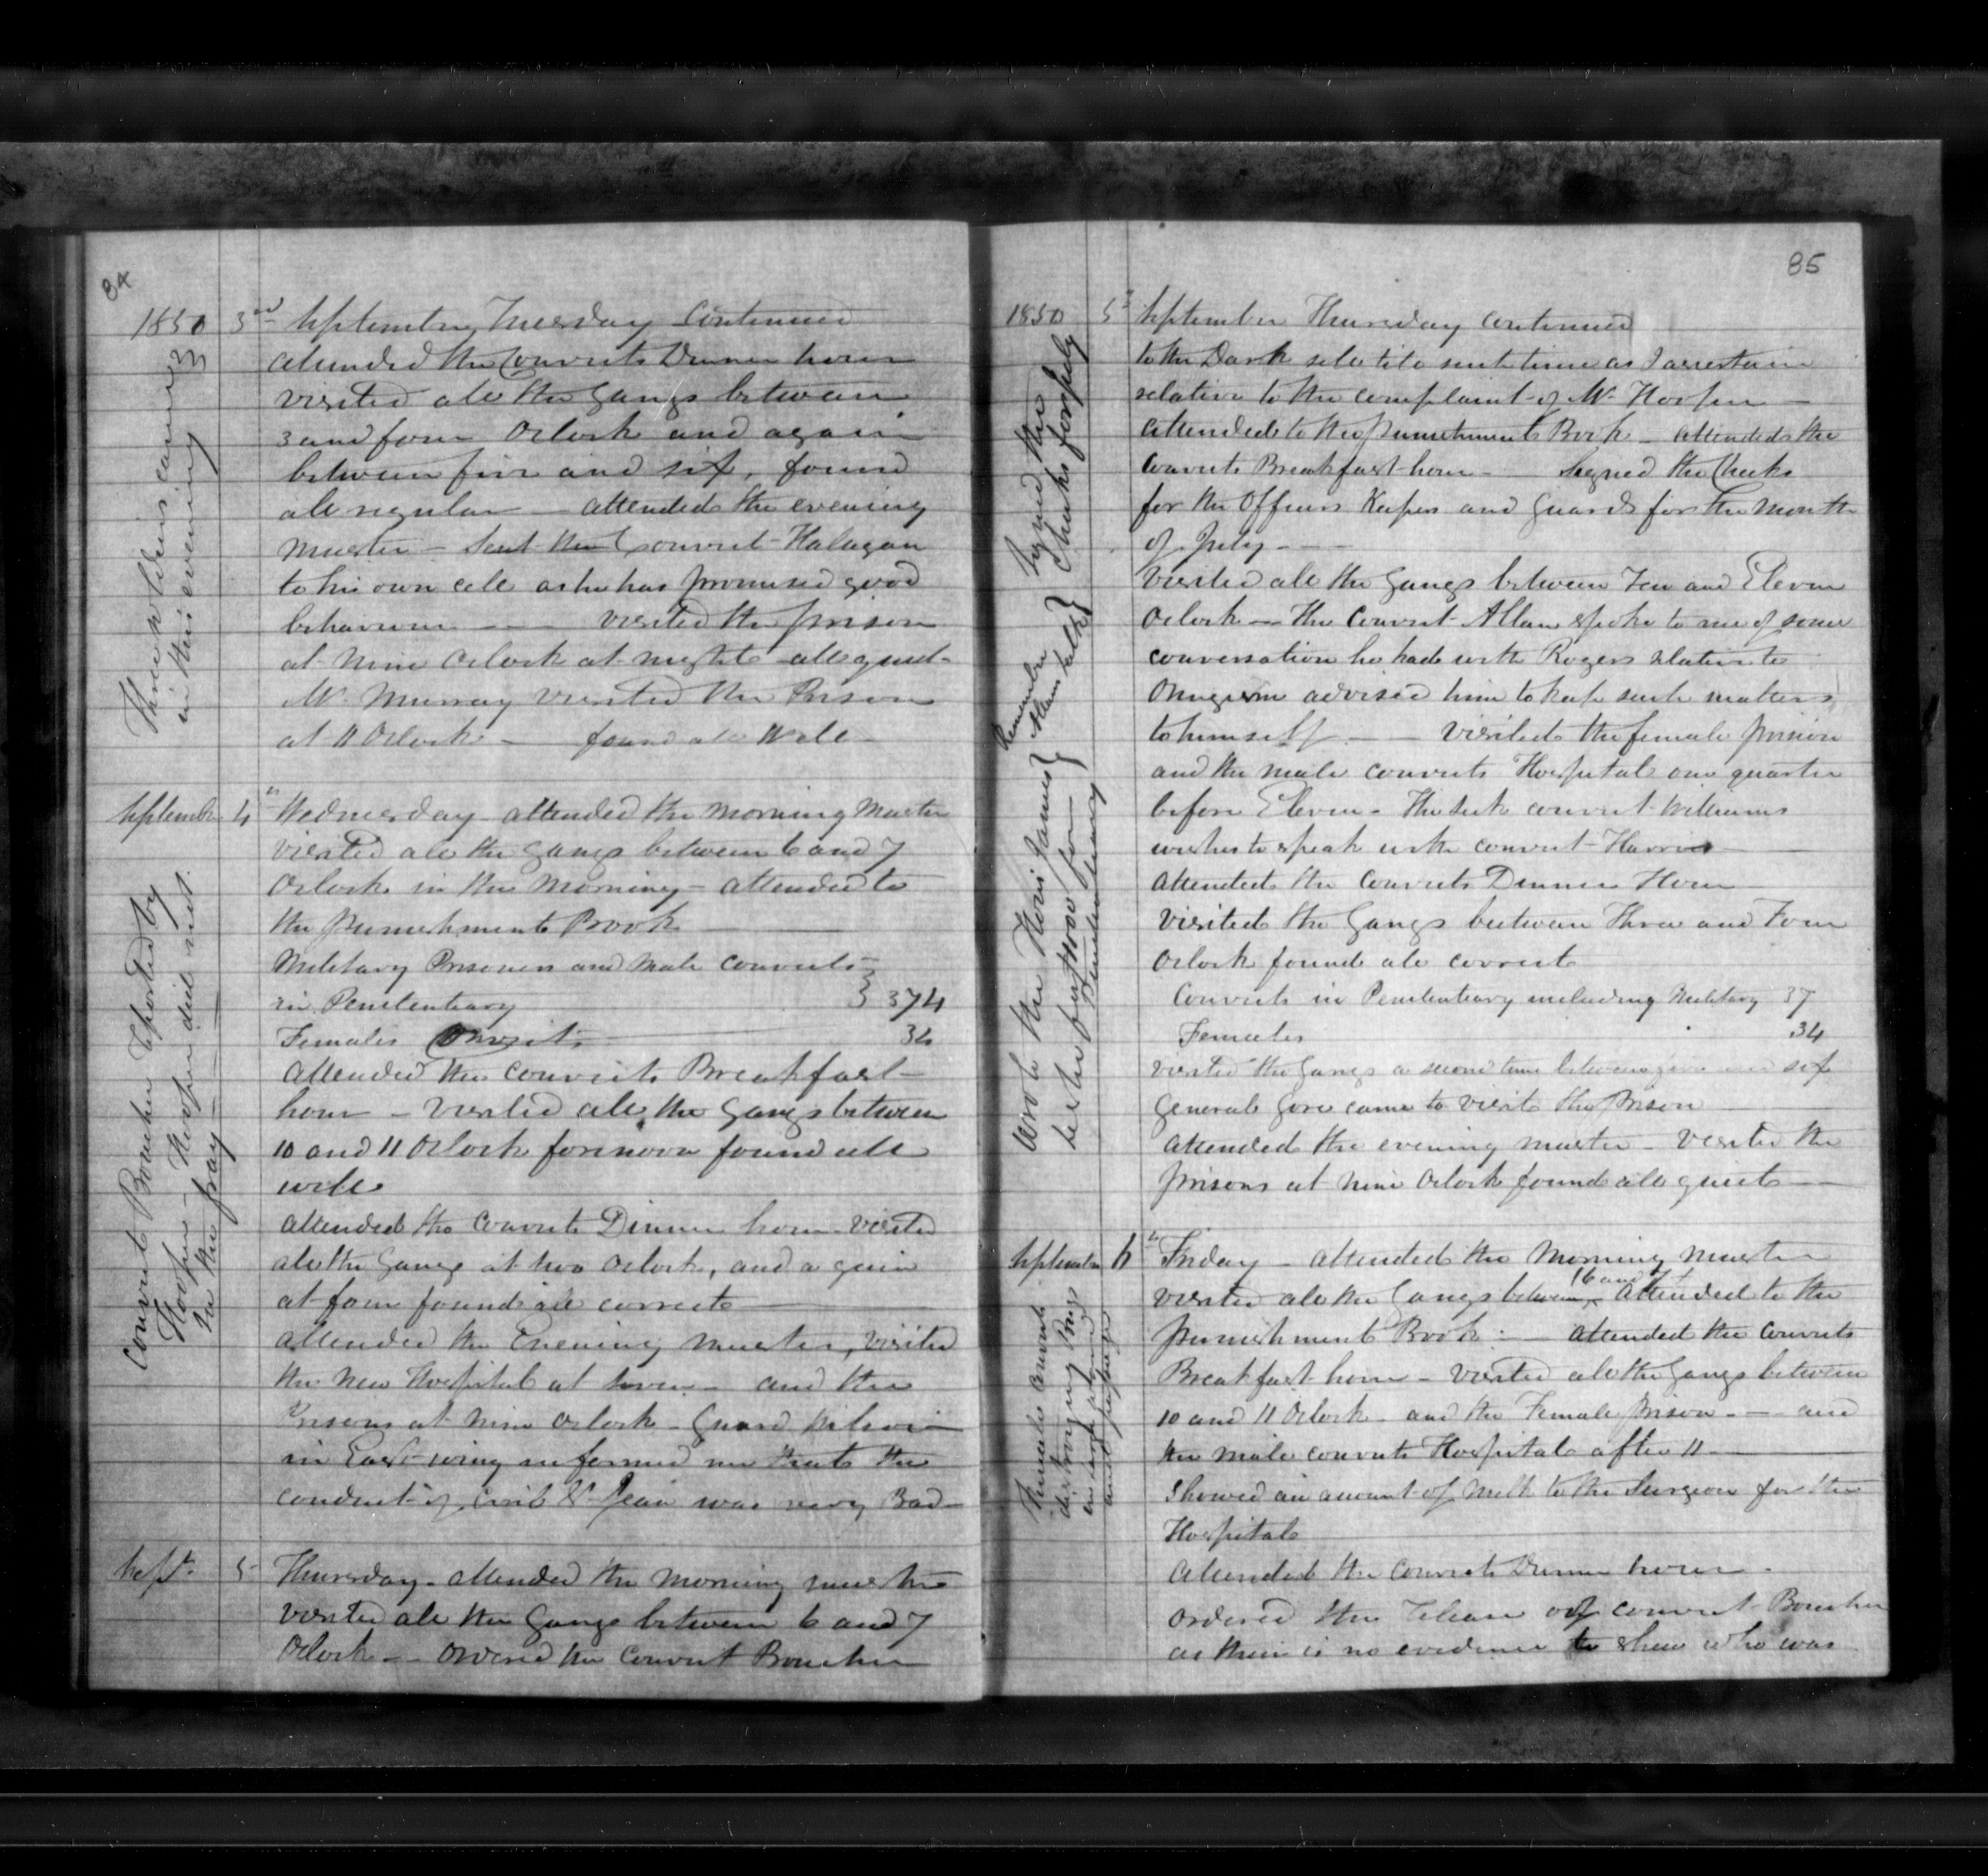 84
1850 3rd September, Tuesday Continued
attended the Convicts Dinner hour
visited all the Gangs between
3 and four Oclock and again
between five and six, found
all regular — attended the evening
Muster — Sent the Convict Halagan
to his own cell as he has promised good
behaviour — visited the prison
at nine Oclock at night all quiet
Mr Murray visited the Prison
at 11 Oclock — found all Well
Three soldiers came
in this evening
September 4th Wednesday attended the Morning Muster
visited all the gangs between 6 and 7
Oclock in the Morning — attended to
the punishment Book
Military Prisoners and Male Convicts
in Penitentiary } 374
Females Convicts 34
attended the Convicts Breakfast
hour — Visited all the Gangs between
10 and 11 Oclock forenoon found all
well
attended the Convicts Dinner hour visited
all the Gangs at two Oclock, and again
at four found all correct
attended the Evening Muster, visited
the New Hospital at seven — and the
Prisons at nine Oclock — Guard
in East wing informed me that the
conduct of St Jean was very Bad
Convict Boucher reported by
Hooper — Hooper did not
in the fray
Sept. 5 Thursday — attended the Morning Muster
visited all the Gangs between 6 and 7
Oclock — Ordered the Convict Boucher
85
1850 5th September Thursday continued
to the Dark cell til such time as I ascertain
relative to the complaint of Mr Hooper —
attended to the punishment Book — attended the
Convicts Breakfast hour — Signed the Checks
for the Officers Keepers and Guards for the Month
of July —
Signed the
Checks for July
visited all the Gangs between Ten and Eleven
Oclock — The Convict Allan spoke to me of some
conversation he had with Rogers relative to
advised him to keep such matters
to himself — Visited the female prison
and the male convicts Hospital one quarter
before Eleven — The sick convict Williams
wishes to speak with convict Harris —
attended the Convicts Dinner Hour
Visited the Gangs between Three and Four
Oclock found all correct
Convicts in Penitentiary including Military 37
Females 34
visited the Gangs a second time between five and six
General Gore came to visit the Prison
attended the evening muster — Visited the
prisons at nine Oclock found all quiet —
Remember
Allans talk
the
for
Penitentiary
September 6th Friday — attended the Morning Muster
visited all the Gangs between 6 and 7 attended to the
punishment Book — attended the Convicts
Breakfast hour — Visited all the Gangs between
10 and 11 Oclock — and the Female prison — and
the male convicts Hospital after 11 —
Showed an amount of Milk to the Surgeon for the
Hospital
attended the Convicts Dinner hour —
Ordered the release of convict Boucher
as there is no evidence to shew who was
Females Convicts
destroying Rugs